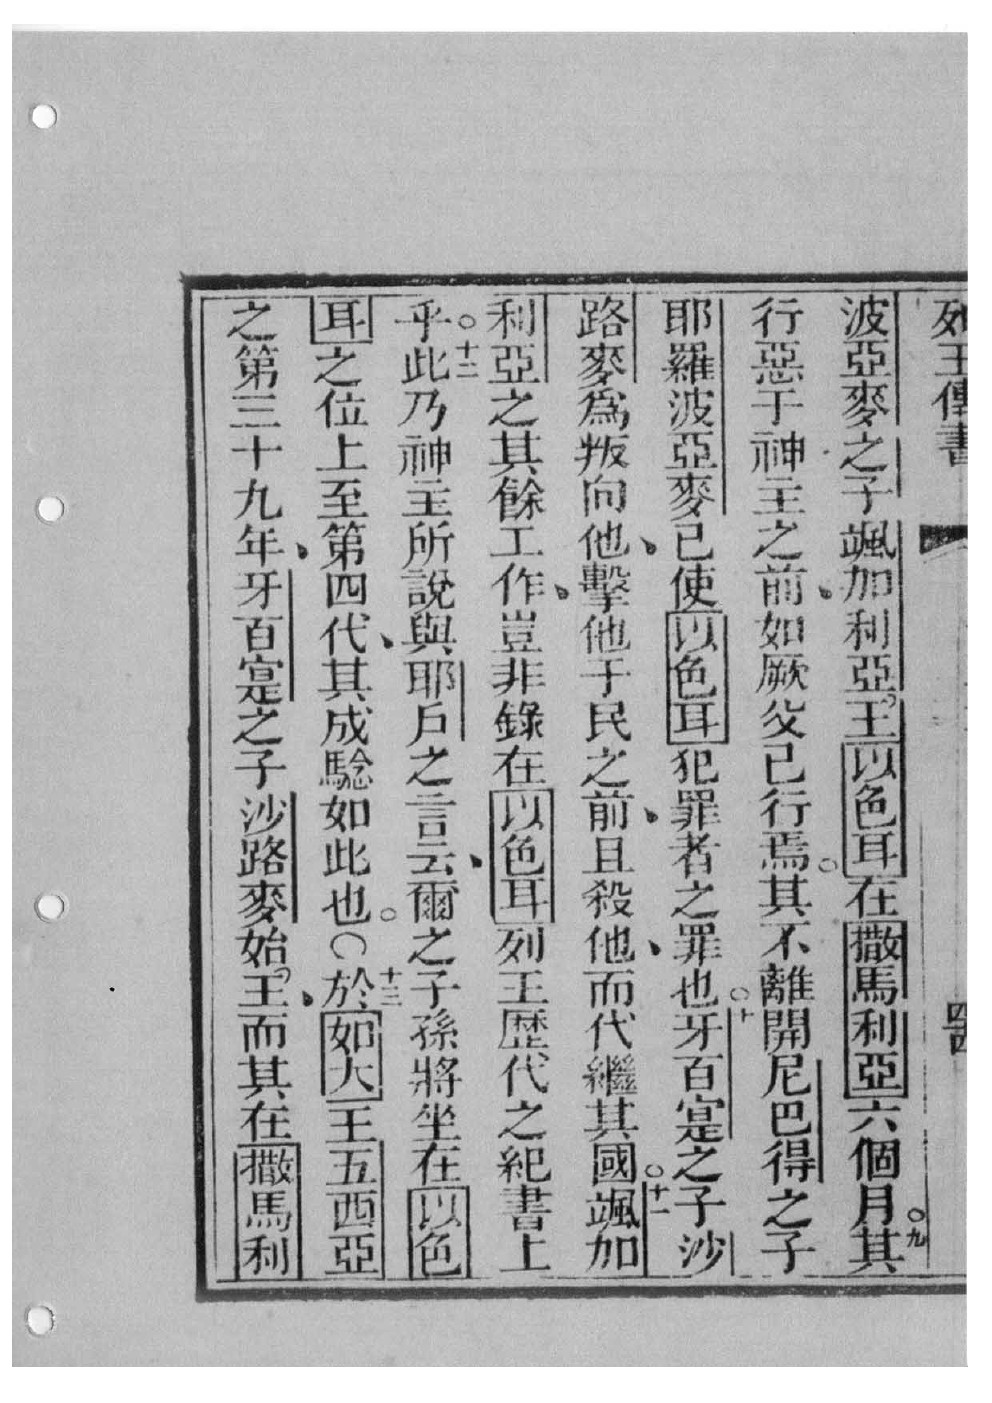 列王傳書
波亞麥之子颯加利亞王以色耳在撒馬利亞六個月○九其
行惡于神主之前、如厥父已行焉○其不離開尼巴得之子
耶羅波亞麥已使以色耳犯罪者之罪也○十牙百寔之子沙
路麥爲叛向他、擊他于民之前、且殺他、而代繼其國○十一颯加
利亞之其餘工作、豈非錄在以色耳列王歷代之紀書上
乎○十二此乃神主所說與耶戶之言云、爾之子孫將坐在以色
耳之位上至第四代、其成騐如此也○〇十三於如大王五西亞
之第三十九年、牙百寔之子沙路麥始王、而其在撒馬利